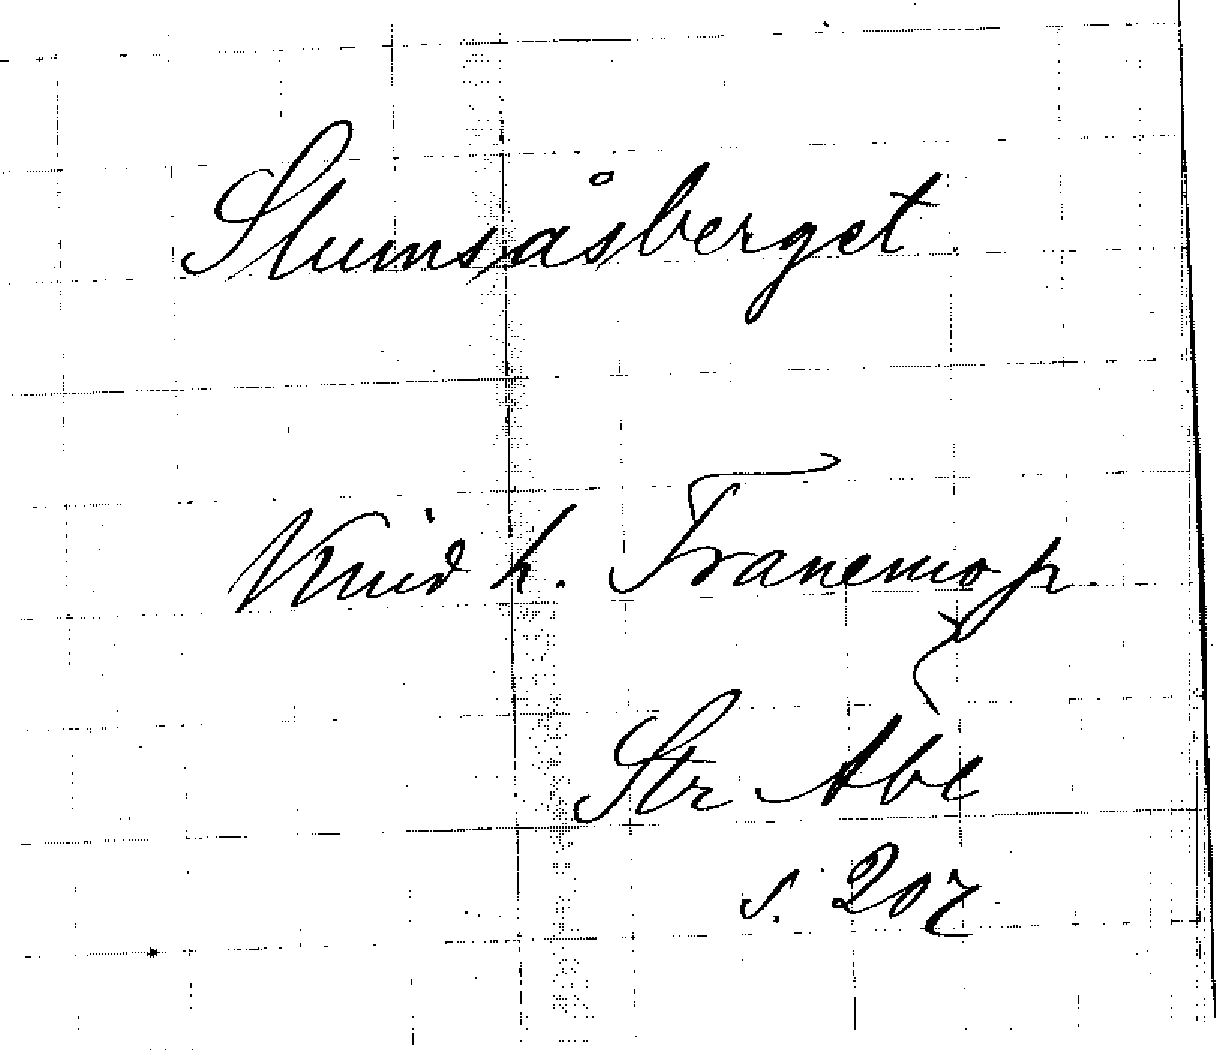 Slumsåsberget
Kind h. Tranemo p.
Str Abl
s. 207